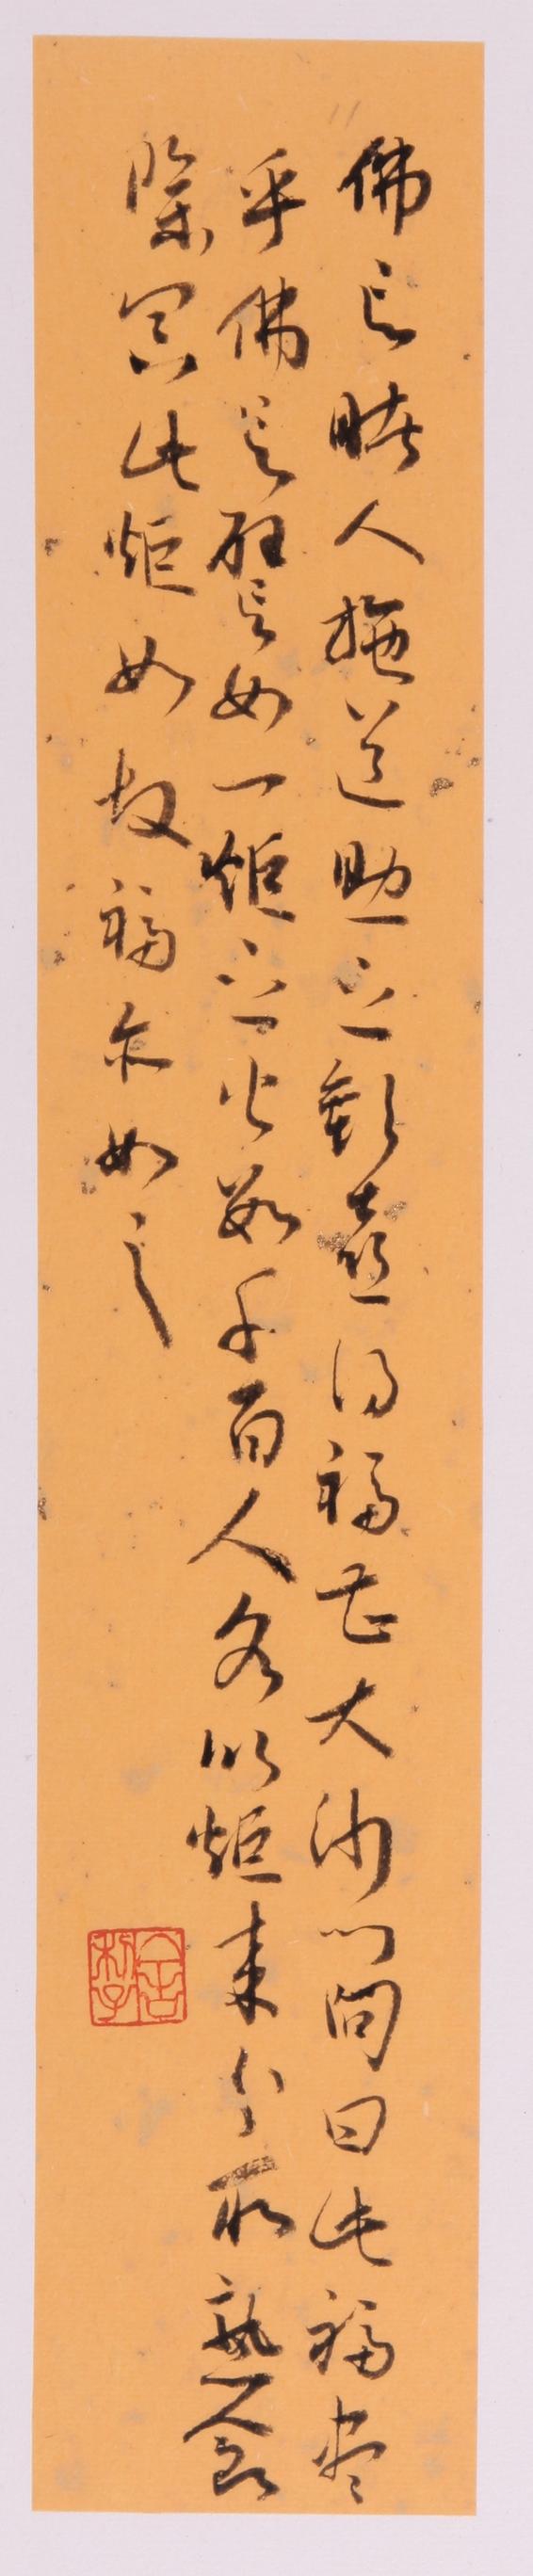 佛言睹人施道助之歡喜得福甚大沙門問曰此福盡
乎佛言譬如一炬之火數千百人各以炬來分取熟食
除冥此炬如故福亦如之
舍利子